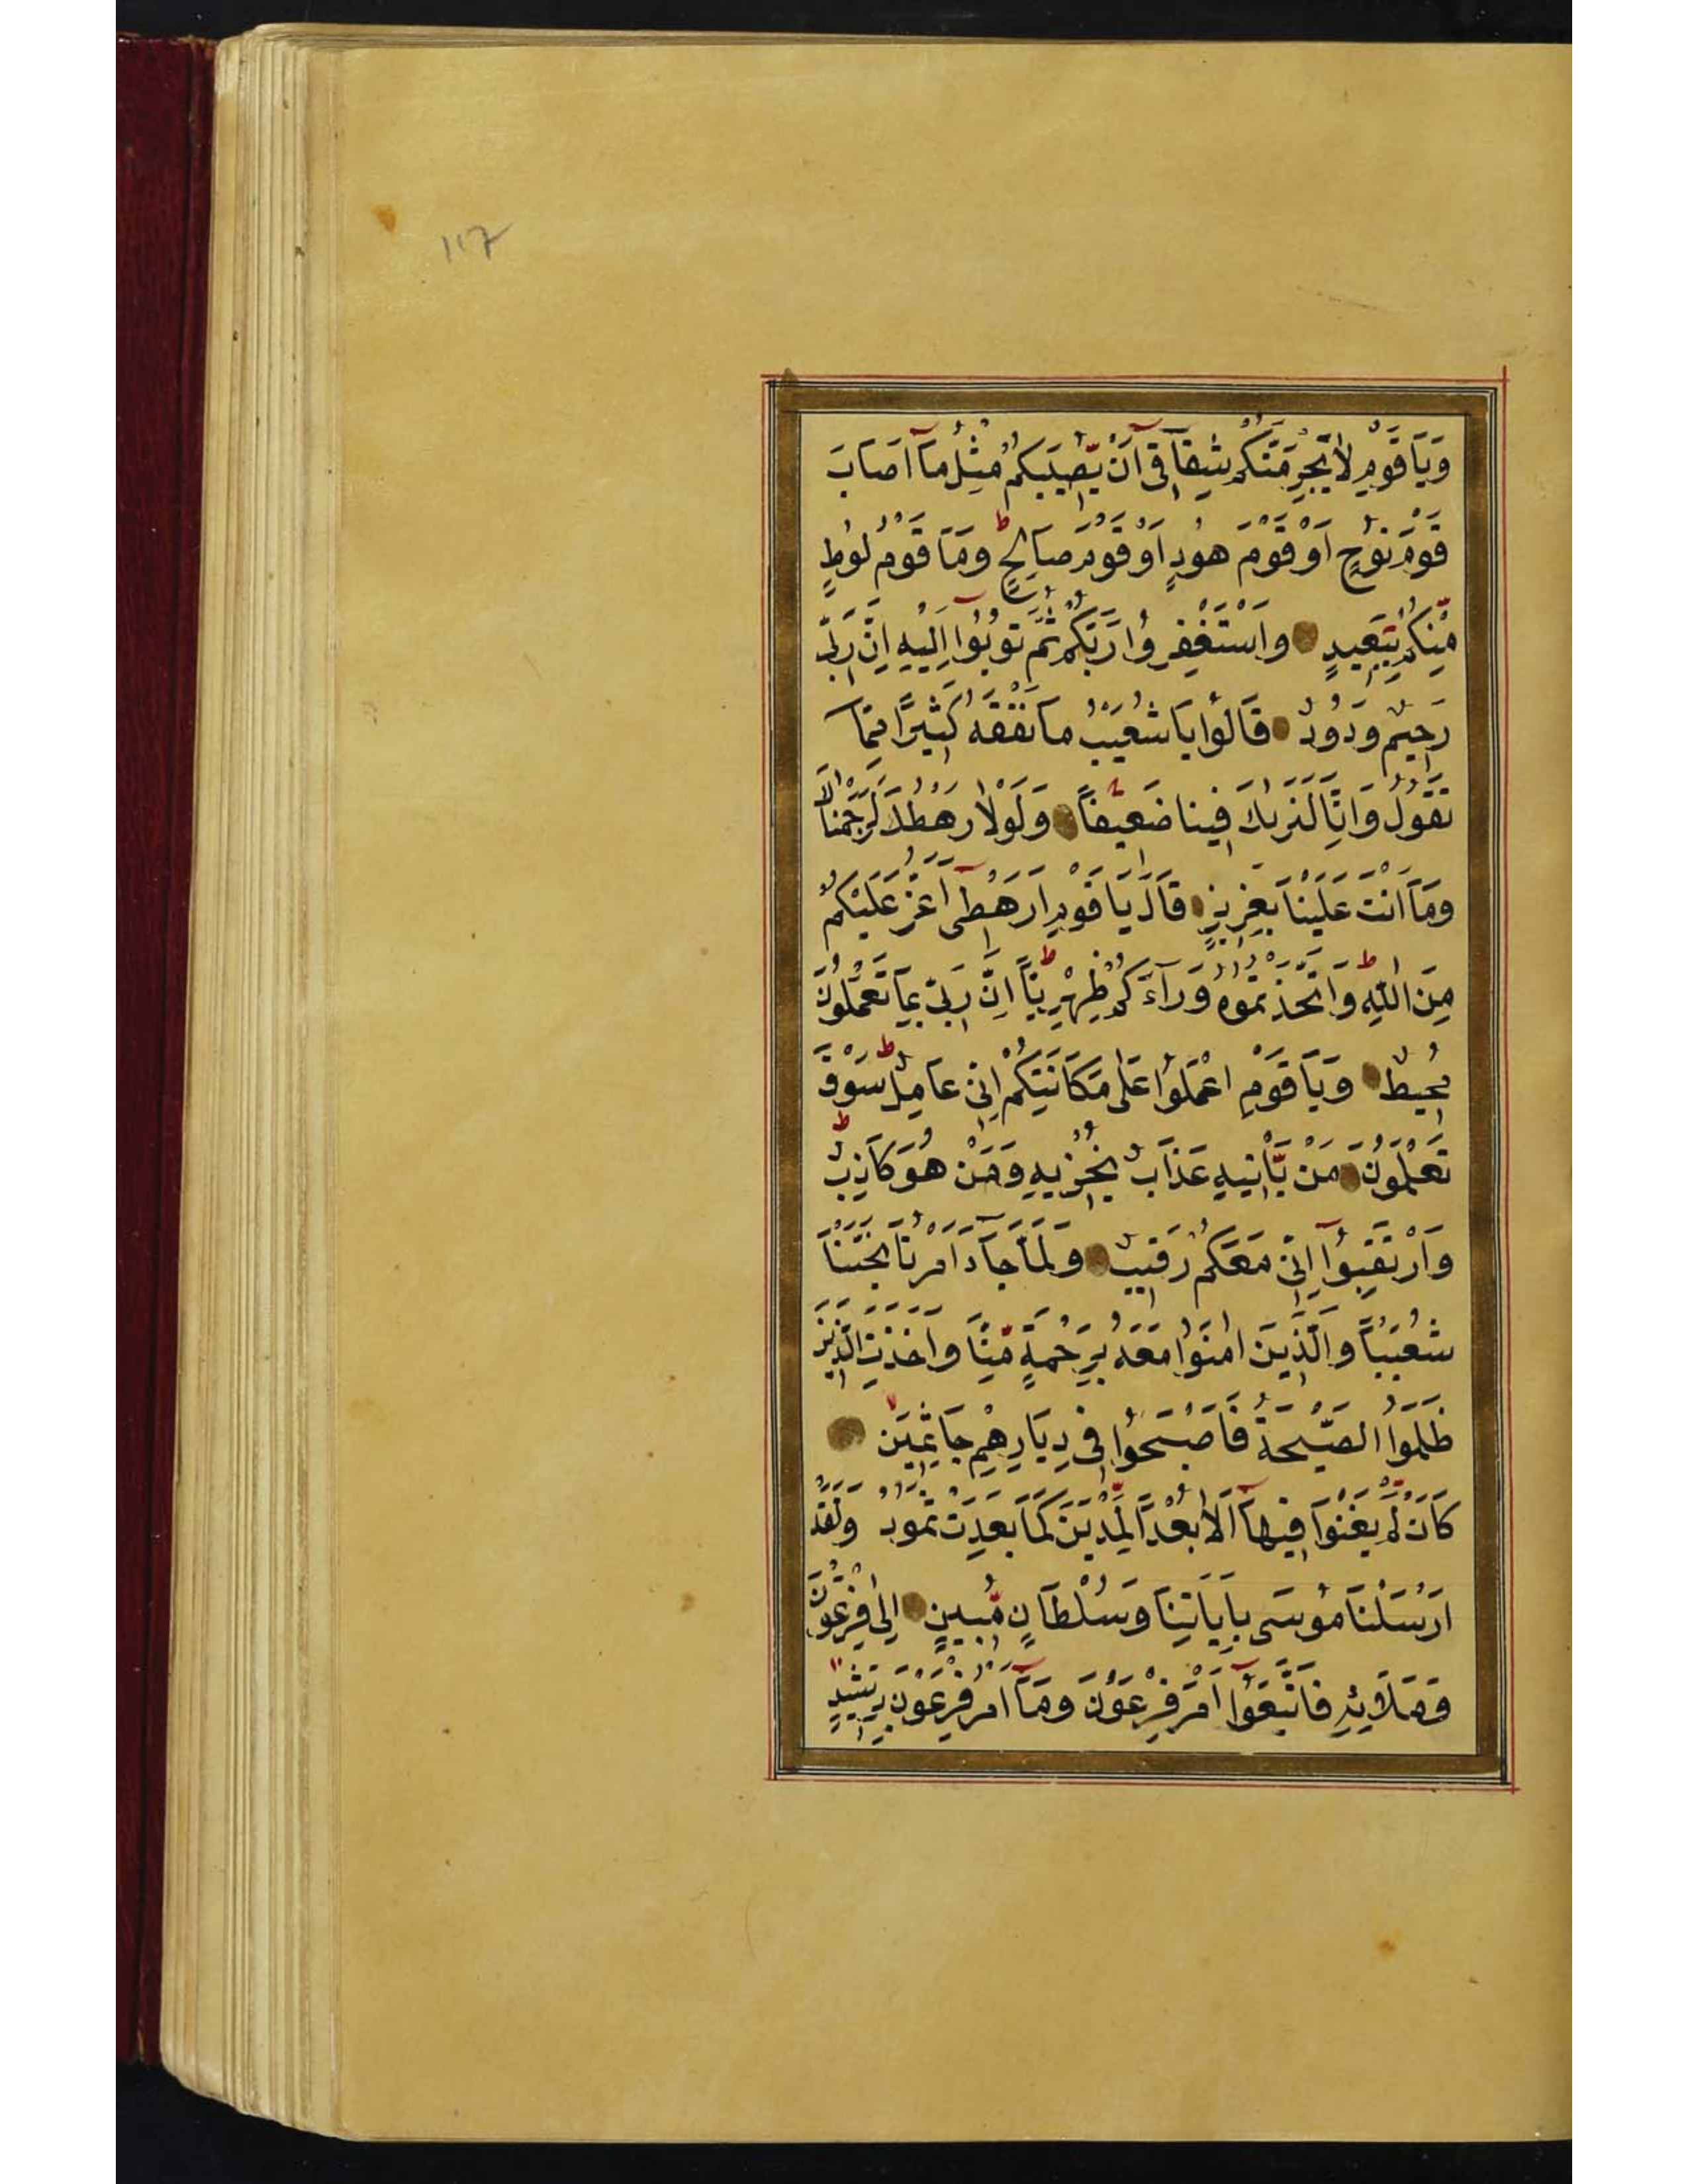 117
وَيَا قَوْمِ لَا يَجْرِمَنَّكُمْ شِقَاقِٓي اَنْ يُّصِيبَكُمْ مِثْلُ مَٓا اَصَابَ
قَوْمَ نُوحٍ اَوْ قَوْمَ هُودٍ اَوْ قَوْمَ صَالِحٍ ط وَمَا قَوْمُ لُوطٍ
مِّنْكُمْ بِبَعِيدٍ وَاسْتَغْفِرُوا رَبَّكُمْ ثُمَّ تُوبُٓوا اِلَيْهِ اِنَّ رَبِّي
رَحِيمٌ وَدُودٌ قَالُوا يَا شُعَيْبُ مَا نَفْقَهُ كَثِيرًا مِمَّا
تَقُولُ وَاِنَّا لَنَرٰيكَ فِينَا ضَعِيفًا وَلَوْلَا رَهْطُكَ لَرَجَمْنَاكَ
وَمَٓا اَنْتَ عَلَيْنَا بِعَزِيزٍ قَالَ يَا قَوْمِ اَرَهْطِٓي اَعَزُّ عَلَيْكُمْ
مِنَ اللّٰهِ ط وَاتَّخَذْتُمُوهُ وَرَآءَكُمْ ظِهْرِيًّا ط اِنَّ رَبِّي بِمَا تَعْمَلُونَ
مُحِيطٌ وَيَا قَوْمِ اعْمَلُوا عَلٰى مَكَانَتِكُمْ اِنِّي عَامِلٌ ط سَوْفَ
تَعْلَمُونَ مَنْ يَّاْتِيهِ عَذَابٌ يُخْزِيهِ وَمَنْ هُوَ كَاذِبٌ ط
وَارْتَقِبُٓوا اِنِّي مَعَكُمْ رَقِيبٌ وَلَمَّا جَآءَ اَمْرُنَا نَجَّيْنَا
شُعَيْبًا وَالَّذِينَ اٰمَنُوا مَعَهُ بِرَحْمَةٍ مِّنَّا وَاَخَذَتِ الَّذِينَ
ظَلَمُوا الصَّيْحَةُ فَاَصْبَحُوا فِي دِيَارِهِمْ جَاثِمِينَ
كَاَنْ لَمْ يَغْنَوْا فِيهَٓا اَلَا بُعْدًا لِّمَدْيَنَ كَمَا بَعِدَتْ ثَمُودُ وَلَقَدْ
اَرْسَلْنَا مُوسٰى بِاٰيَاتِنَا وَسُلْطَانٍ مُّبِينٍ اِلٰى فِرْعَوْنَ
وَمَلَائِهِ فَاتَّبَعُٓوا اَمْرَ فِرْعَوْنَ وَمَٓا اَمْرُ فِرْعَوْنَ بِرَشِيدٍ